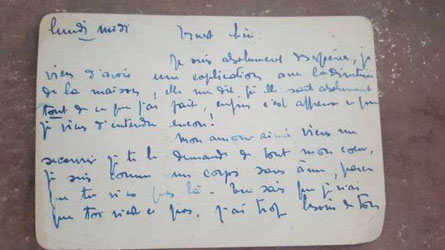 lundi midi
Je suis absolument désespérée, je
viens d'avoir une explication avec la directrice
de la maison, elle m'a dit qu'elle sait absolument
tout de ce que j'ai fait, enfin c'est affreux ce que
je viens d'entendre encore!
Mon amour aimé viens me
secourir je te le demande de tout mon cœur,
je suis comme un corps sans âme, parce
que tu n'es pas là. Tu sais que je n'ai
que toi n'est ce pas. j'ai trop besoin de toi